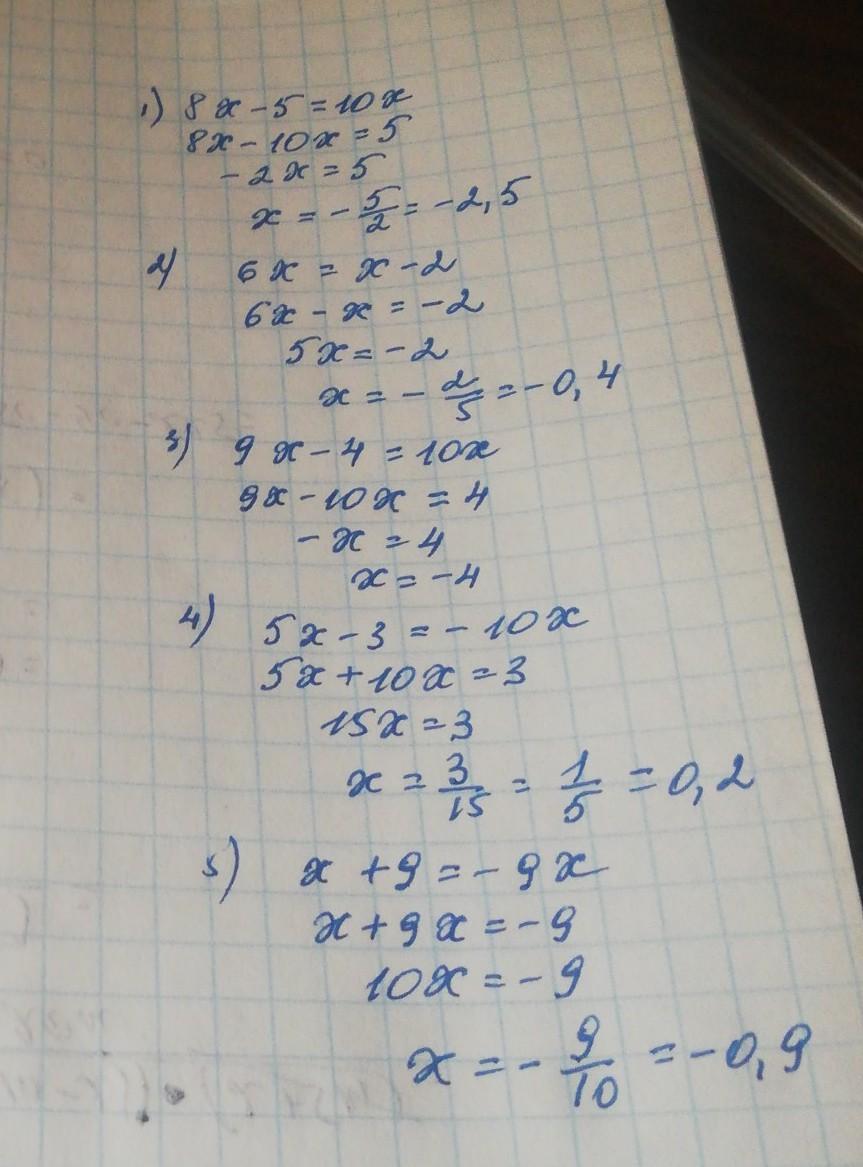 1) 8x - 5 = 10x
8x - 10x = 5
-2x = 5
x = -5/2 = -2,5
2) 6x = x - 2
6x - x = -2
5x = -2
x = -2/5 = -0,4
3) 9x - 4 = 10x
9x - 10x = 4
-x = 4
x = -4
4) 5x - 3 = -10x
5x + 10x = 3
15x = 3
x = 3/15 = 1/5 = 0,2
5) x + 9 = -9x
x + 9x = -9
10x = -9
x = -9/10 = -0,9